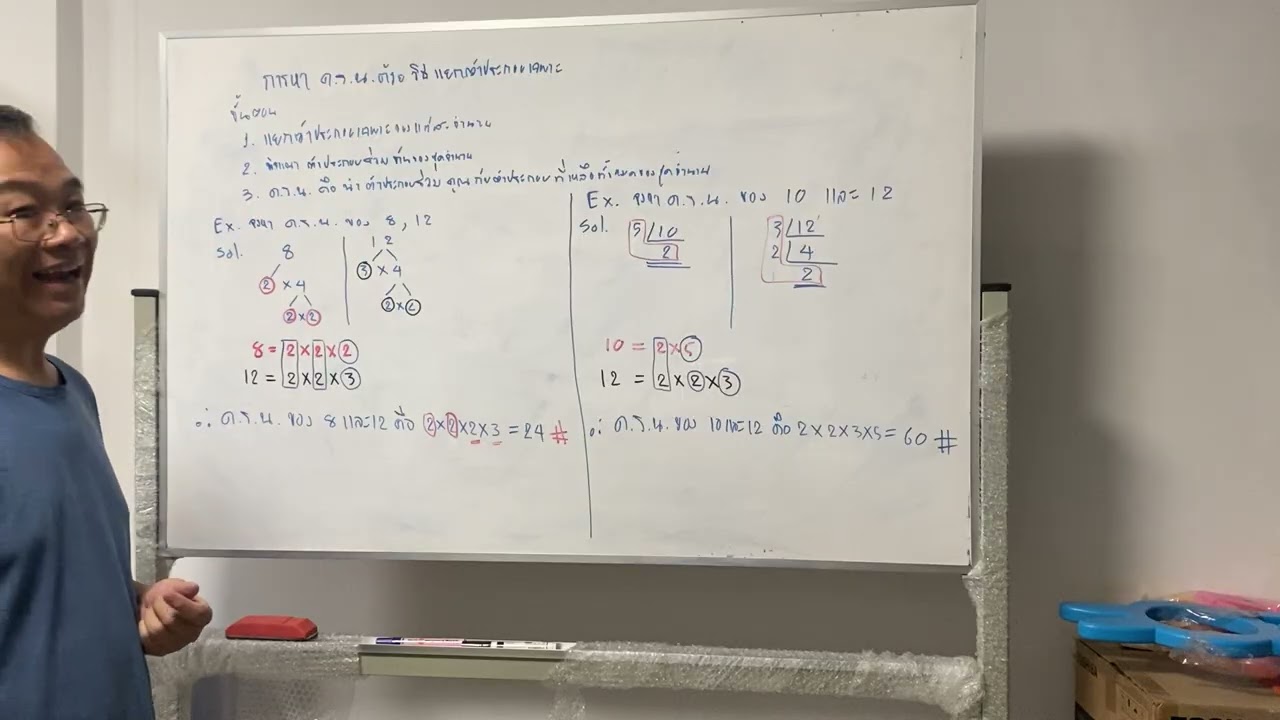 การหา ค.ร.น. ด้วย วิธี แยกตัวประกอบเฉพาะ
ขั้นตอน
1. แยกตัวประกอบเฉพาะ ของ แต่ละ จำนวน
2. ตัวประกอบร่วม ชุดจำนวน
3. ค.ร.น. คือ นำ ตัวประกอบร่วม คูณ กับ ตัวประกอบ ที่เหลือทั้งหมดของชุดจำนวน
Ex. จงหา ค.ร.น. ของ 8, 12
Sol.
8
2 × 4
2 × 2
12
3 × 4
2 × 2
8 = 2 × 2 × 2
12 = 2 × 2 × 3
∴ ค.ร.น. ของ 8 และ 12 คือ 2 × 2 × 2 × 3 = 24 #
Ex. จงหา ค.ร.น. ของ 10 และ 12
Sol.
5 10
2
3 12
2 4
2
10 = 2 × 5
12 = 2 × 2 × 3
∴ ค.ร.น. ของ 10 และ 12 คือ 2 × 2 × 3 × 5 = 60 #